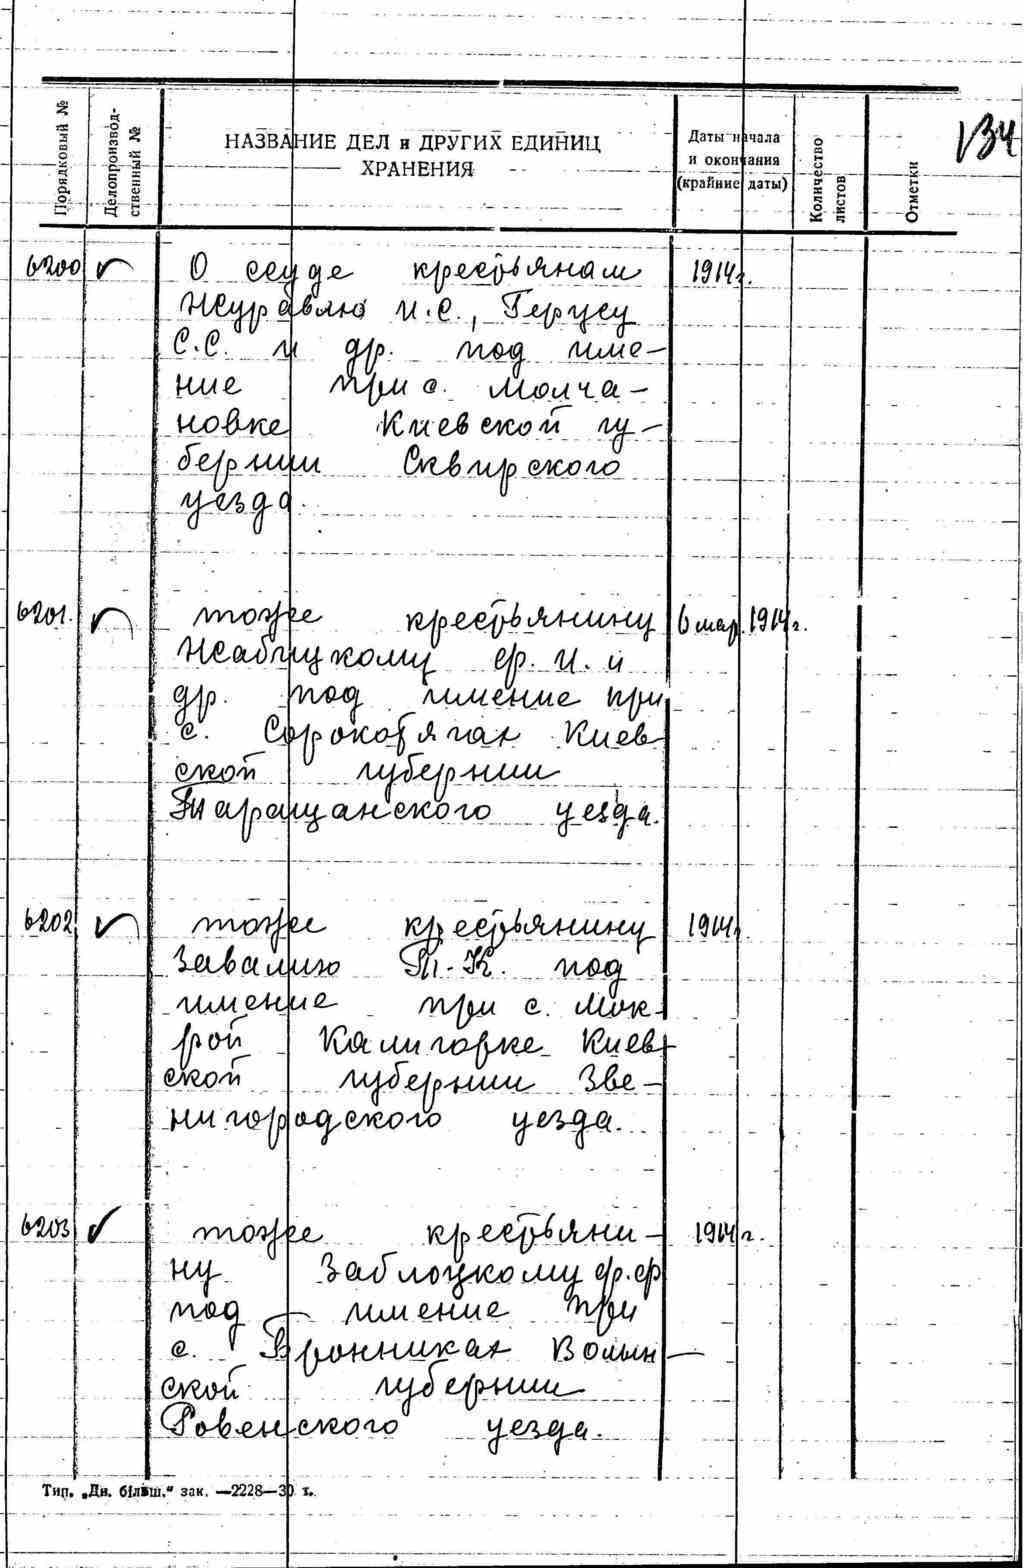 134
Порядковый №
Делопроизвод-
ственный №
НАЗВАНИЕ ДЕЛ и ДРУГИХ ЕДИНИЦ
ХРАНЕНИЯ
Даты начала
и окончания
(крайние даты)
Количество
листов
Отметки
6200 О ссуде крестьянам 1914г.
Журавлю И.С., Герусу
С.С. и др. под име-
ние при с. Молча-
новке Киевской гу-
бернии Сквирского
уезда.
6201. тоже крестьянину 6 мар. 1914г.
Жабицкому Ф. И. и
др. под имение при
с. Сорокотягах Киев-
ской губернии
Таращанского уезда.
6202 тоже крестьянину 1914г.
Завалию Т.К. под
имение при с. Мок-
рой Калигорке Киев-
ской губернии Зве-
нигородского уезда.
6203 тоже крестьяни- 1914г.
ну Заблоцкому Ф.Ф
под имение при
с. Бронниках Волын-
ской губернии
Ровенского уезда.
Тип. „Дн. більш." зак. —2228—30 т.